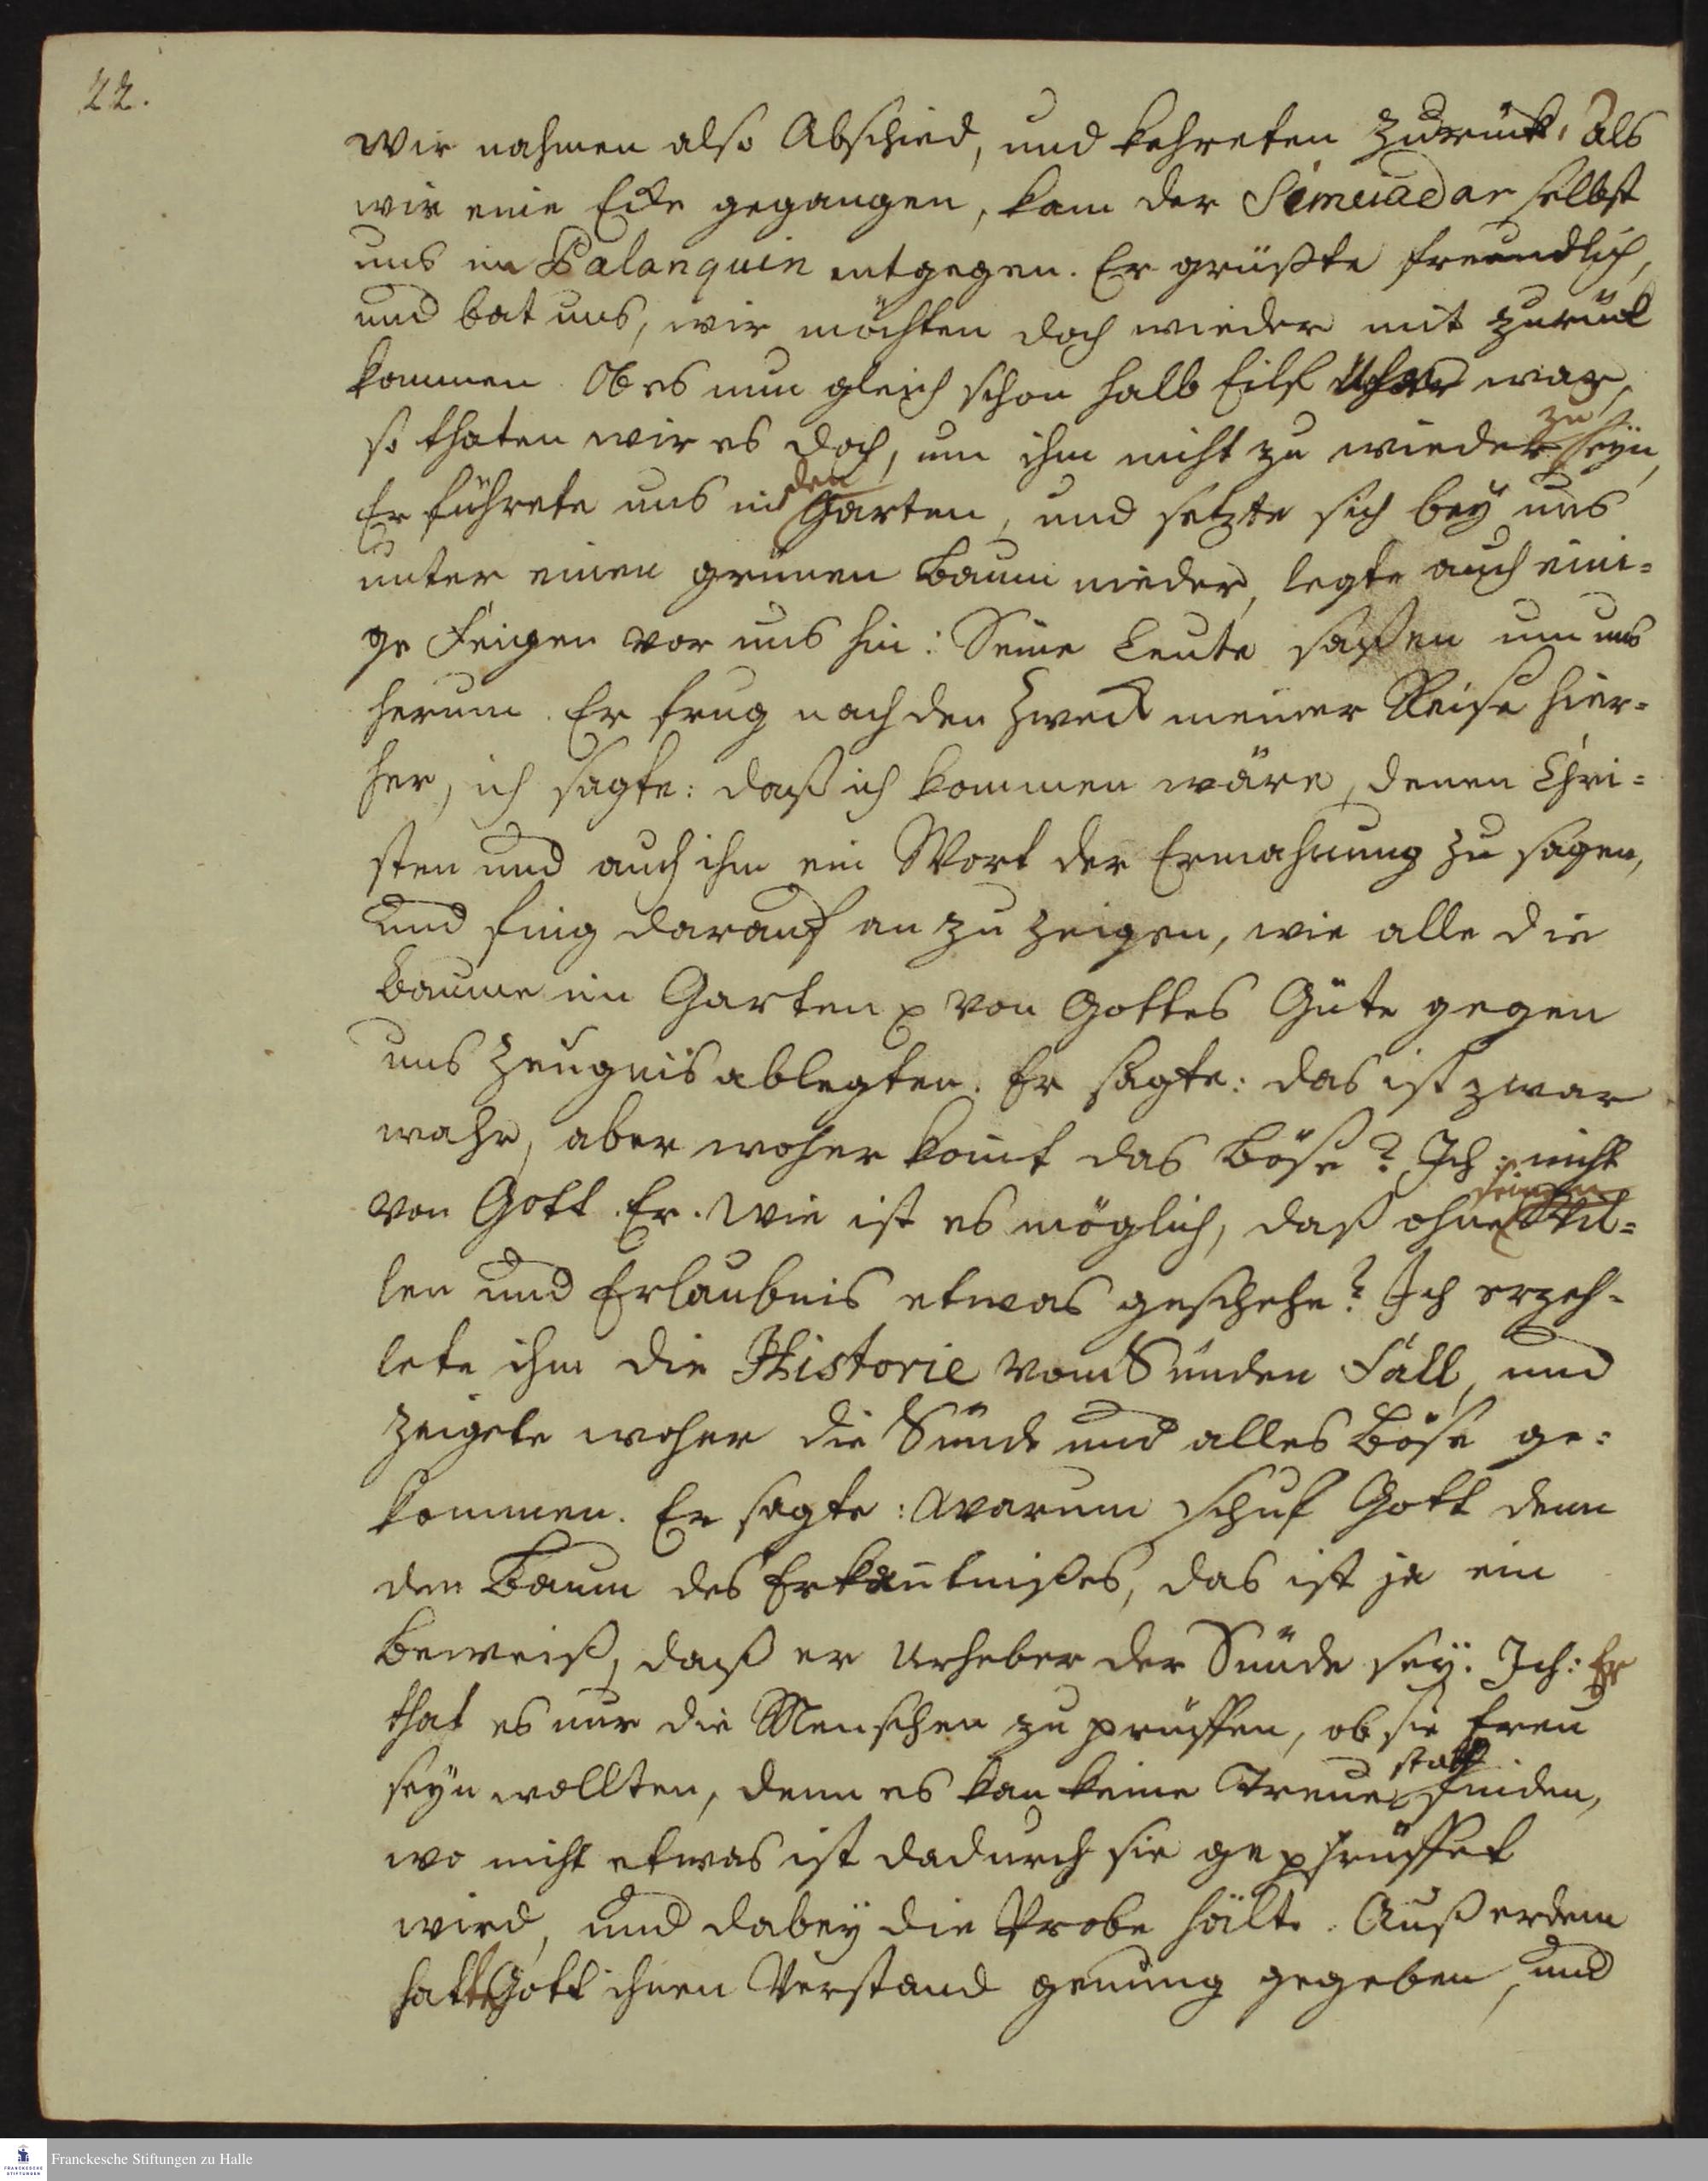 22.
wir nahmen also Abschied, und kehreten zurück, als
wir eine Ecke gegangen, kam der Simeiadar selbst
uns im Palanquin entgegen. Er grüßte freundlich,
und bat uns, wir möchten doch wieder mit zurück
kommen. Ob es nun gleich schon halb Eilf Uhr war,
so thaten wir es doch, um ihm nicht zu wieder zu seyn,
Er führete uns in den Garten, und setzte sich bey uns
unter einen grünen Baum nieder, legte auch eini-
ge Feigen vor uns hin: Seine Leute saßen um uns
herum. Er frug nach den Zweck meiner Reise hier-
her, ich sagte: daß ich kommen wäre, denen Chri-
sten und auch ihm ein Wort der Ermahnung zu sagen,
und fing darauf an zu zeigen, wie alle die
Baume im Garten p von Gottes Güte gegen
uns Zeugnis ablegten. Er sagte: das ist zwar
wahr, aber woher komt das Böse? Ich: nicht
von Gott. Er. Wie ist es möglich, daß ohne seinen Wil-
len und Erlaubnis etwas geschehe? Ich erzeh-
lete ihm die Historie vom Sünden Fall, und
zeigete woher die Sünde und alles Böse ge-
kommen. Er sagte: Warum schuf Gott denn
den Baum des Erkäntnißes, das ist ja ein
Beweiß, daß er Urheber der Sünde sey. Ich: Er
that es nur die Menschen zu prüffen, ob sie treu
seyn wollten, denn es kan keine Treue statt finden,
wo nicht etwas ist dadurch sie geprüffet
wird, und dabey die Probe hält. Außerdem
hatte Gott ihnen Verstand genung gegeben, und
Franckesche Stiftungen zu Halle
FRANCKESCHE
STIFTUNGEN